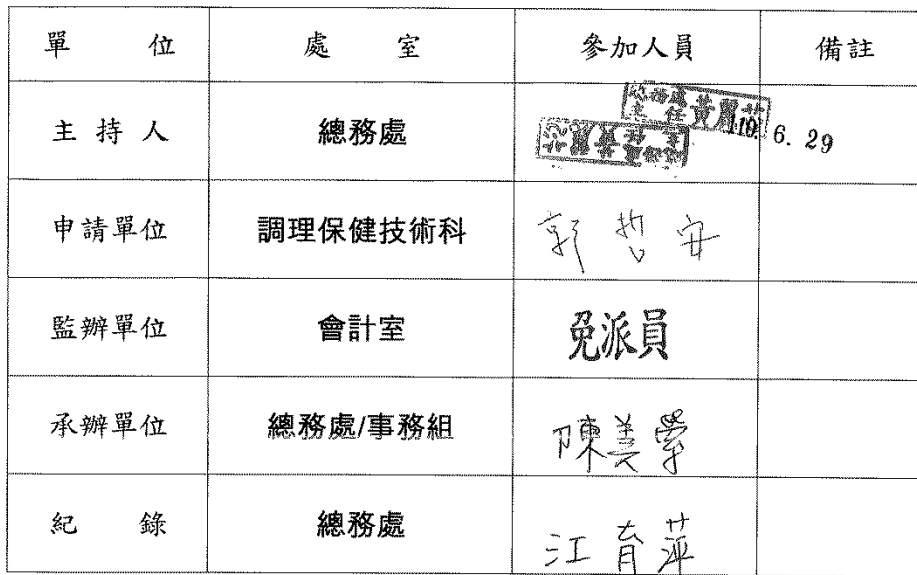 單 位 處 室 參加人員 備註
主 持 人 總務處 總務處 主任 黃麗 110. 6. 29
申請單位 調理保健技術科 郭哲安
監辦單位 會計室 免派員
承辦單位 總務處/事務組 陳美
紀 錄 總務處 江育萍